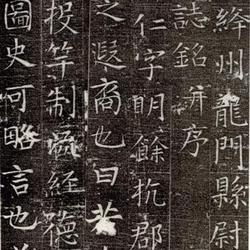 絳州龍門縣尉
誌銘并序
仁字明餘杭郡
之遐裔也曰若
投竿制經德
圖史可略言也